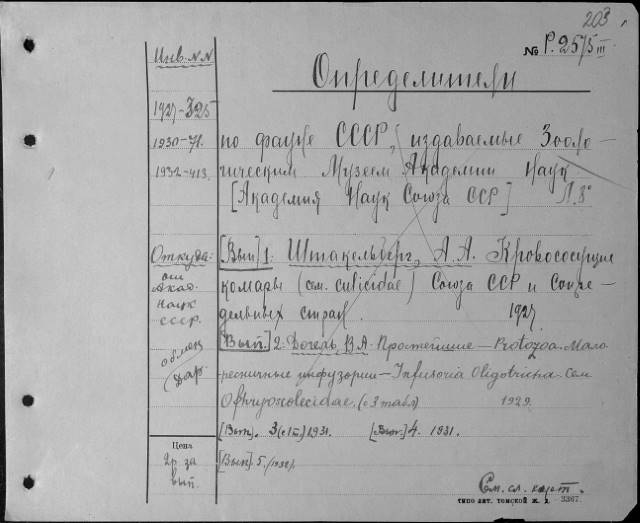 203
№ Р.25/5 III
Инв. №№
Определители
1927-325
1930-71.
1932-413.
по фауне СССР, издаваемые Зооло-
гическим Музеем Академии Наук
[Академия Наук Союза ССР] Л. 8°
Откуда:
от
Акад.
Наук
СССР.
обмен
Дар
[Вып] 1. Штакельберг, А. А. Кровососущие
комары (сем. culicidae) Союза ССР и Сопре-
дельных стран. 1927.
[Вып.] 2. Догель, В. А. Простейшие — Protozoa. Мало
ресничные инфузории — Infusoria Oligotricha. Сем
Ophryoscolecidae. (с 3 табл) 1929.
[Вып]. 3 (с III) 1931. [Вып.] 4. 1931.
[Вып]. 5. (1932).
Цена
2р. за
вып.
См. сл. карт.
типо авт. томской ж. д. 3367.